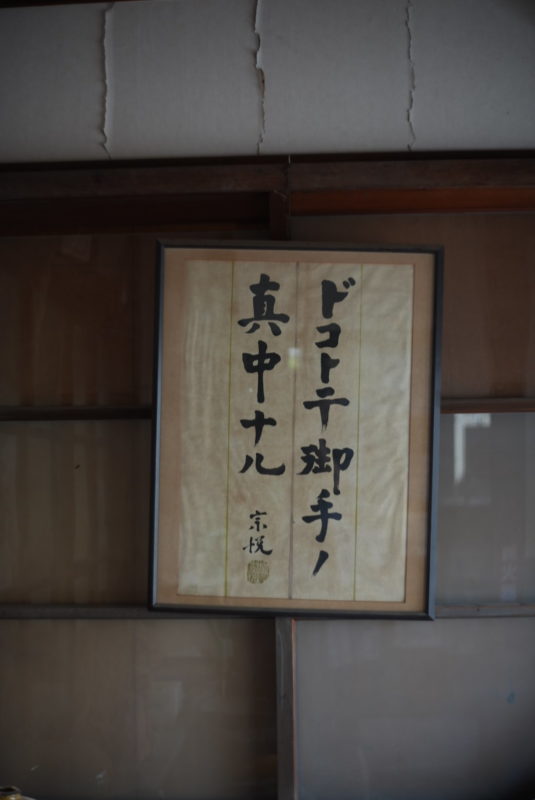 ドコトテ御手ノ
真中ナル
宗悦